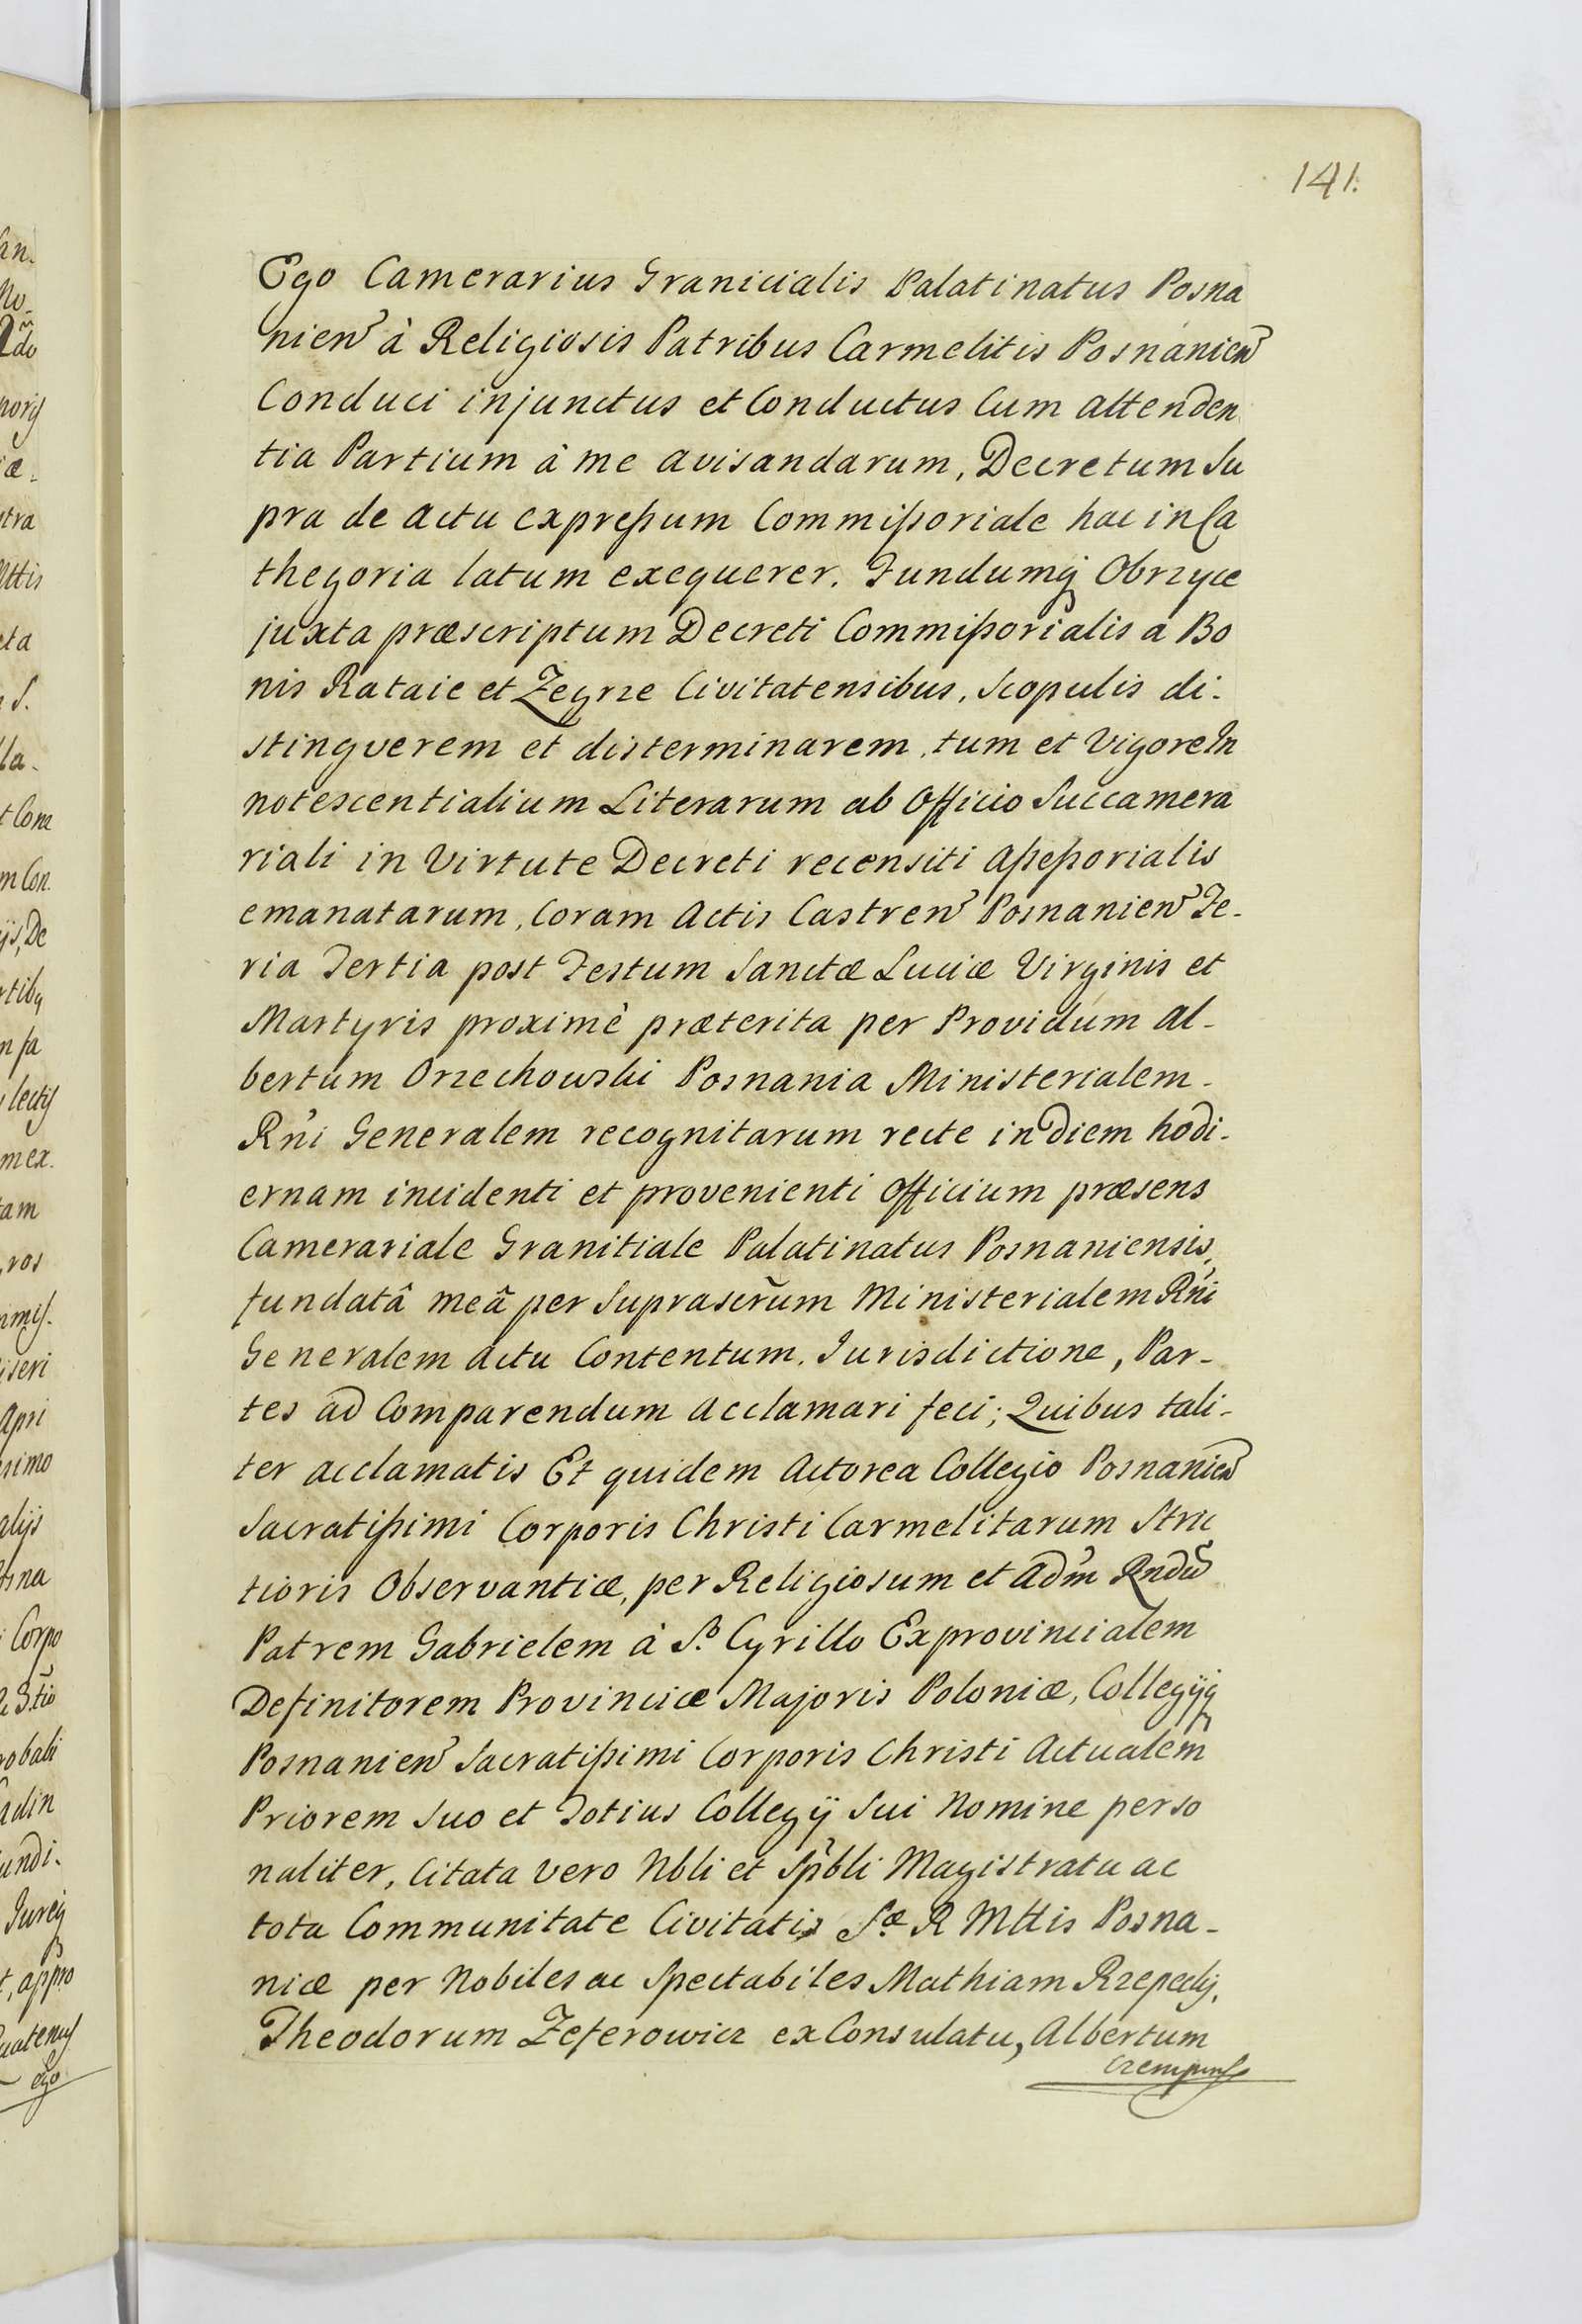 141.
Ego Camerarius Granicialis Palatinatus Posna
nien̄ à Religiosis Patribus Carmelitis Posnanien̄
Conduci injunctus et Conductus Cum atten den
tia Partium à me avisandarum, Decretum Su
pra de actu expreßum Commißoriale hac in Ca
thegoria latum exequerer. Fundumq̨ Obrzyce
juxta præscriptum Decreti Commißorialis a Bo
nis Rataie et Zegrze Civitatensibus, Scopulis di-
stinguerem et disterminarem, tum et Vigore In
notescentialium Literarum ab Officio Succamera
riali in Virtute Decreti recensiti Aßeßorialis
emanatarum, Coram Actis Castren̄ Posnanien̄ Fe-
ria Tertia post Festum Sanctæ Luciæ Virginis et
Martyris proximè præterita per Providum Al-
bertum Orzechowski Posnania Ministerialem-
Rñi Generalem recognitarum recte in Diem hodi-
ernam incidenti et provenienti Officium præsens
Camerariale Granitiale Palatinatus Posnaniensis,
fundatâ meâ per Suprascr̃um Ministerialem Rñi
Generalem actu Contentum, Jurisdictione, Par-
tes ad Comparendum acclamari feci; Quibus tali-
ter acclamatis Et quidem Actorea Collegio Posnanien̄
Sacratißimi Corporis Christi Carmelitarum Stric
tioris Observantiæ, per Religiosum et Adm̃ Rndũ
Patrem Gabrielem à S.º Cyrillo Exprovincialem
Definitorem Provinciæ Majoris Poloniæ, Collegijq̨
Posnanien̄ Sacratißimi Corporis Christi Actualem
Priorem Suo et Totius Collegij Sui Nomine perso
naliter, Citata vero Nbli et Spbli Magistratu ac
tota Communitate Civitatis S.æ R Mttis Posna-
niæ per Nobiles ac Spectabiles Mathiam Rzepecki,
Theodorum Zeferowicz ex Consulatu, Albertum